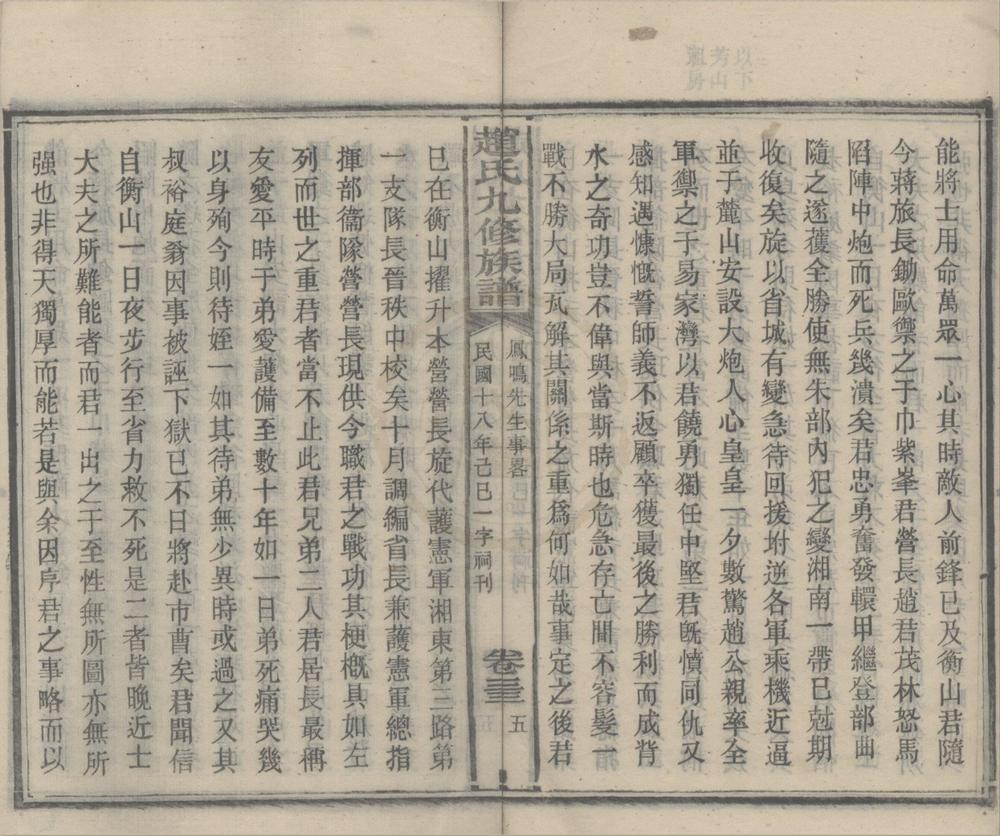 能將士用命萬眾一心其時敵人前鋒已及衡山君隨
今蔣旅長鋤歐禦之于巾紫峯君營長趙君茂林怒馬
陷陣中炮而死兵幾潰矣君忠勇奮發轘甲繼登部曲
隨之遂獲全勝使無朱部內犯之變湘南一帶已尅期
收復矣旋以省城有變急待回援坿逆各軍乘機近逼
並于麓山安設大炮人心皇皇一夕數驚趙公親率全
軍禦之于易家灣以君饒勇獨任中堅君既憤同仇又
感知遇慷慨誓師義不返顧卒獲最後之勝利而成背
水之奇功豈不偉與當斯時也危急存亡間不容髮一
戰不勝大局瓦解其關係之重爲何如哉事定之後君
趙氏九修族譜
鳳鳴先生事畧
民國十八年己巳一字祠刊
卷三
五
已在衡山擢升本營營長旋代護憲軍湘東第三路第
一支隊長晉秩中校矣十月調編省長兼護憲軍總指
揮部衞隊營營長現供今職君之戰功其梗概具如左
列而世之重君者當不止此君兄弟二人君居長最稱
友愛平時于弟愛護備至數十年如一日弟死痛哭幾
以身殉今則待姪一如其待弟無少異時或過之又其
叔裕庭翁因事被誣下獄已不日將赴市曹矣君聞信
自衡山一日夜步行至省力救不死是二者皆晚近士
大夫之所難能者而君一出之于至性無所圖亦無所
强也非得天獨厚而能若是與余因序君之事略而以
以下
芳山
房